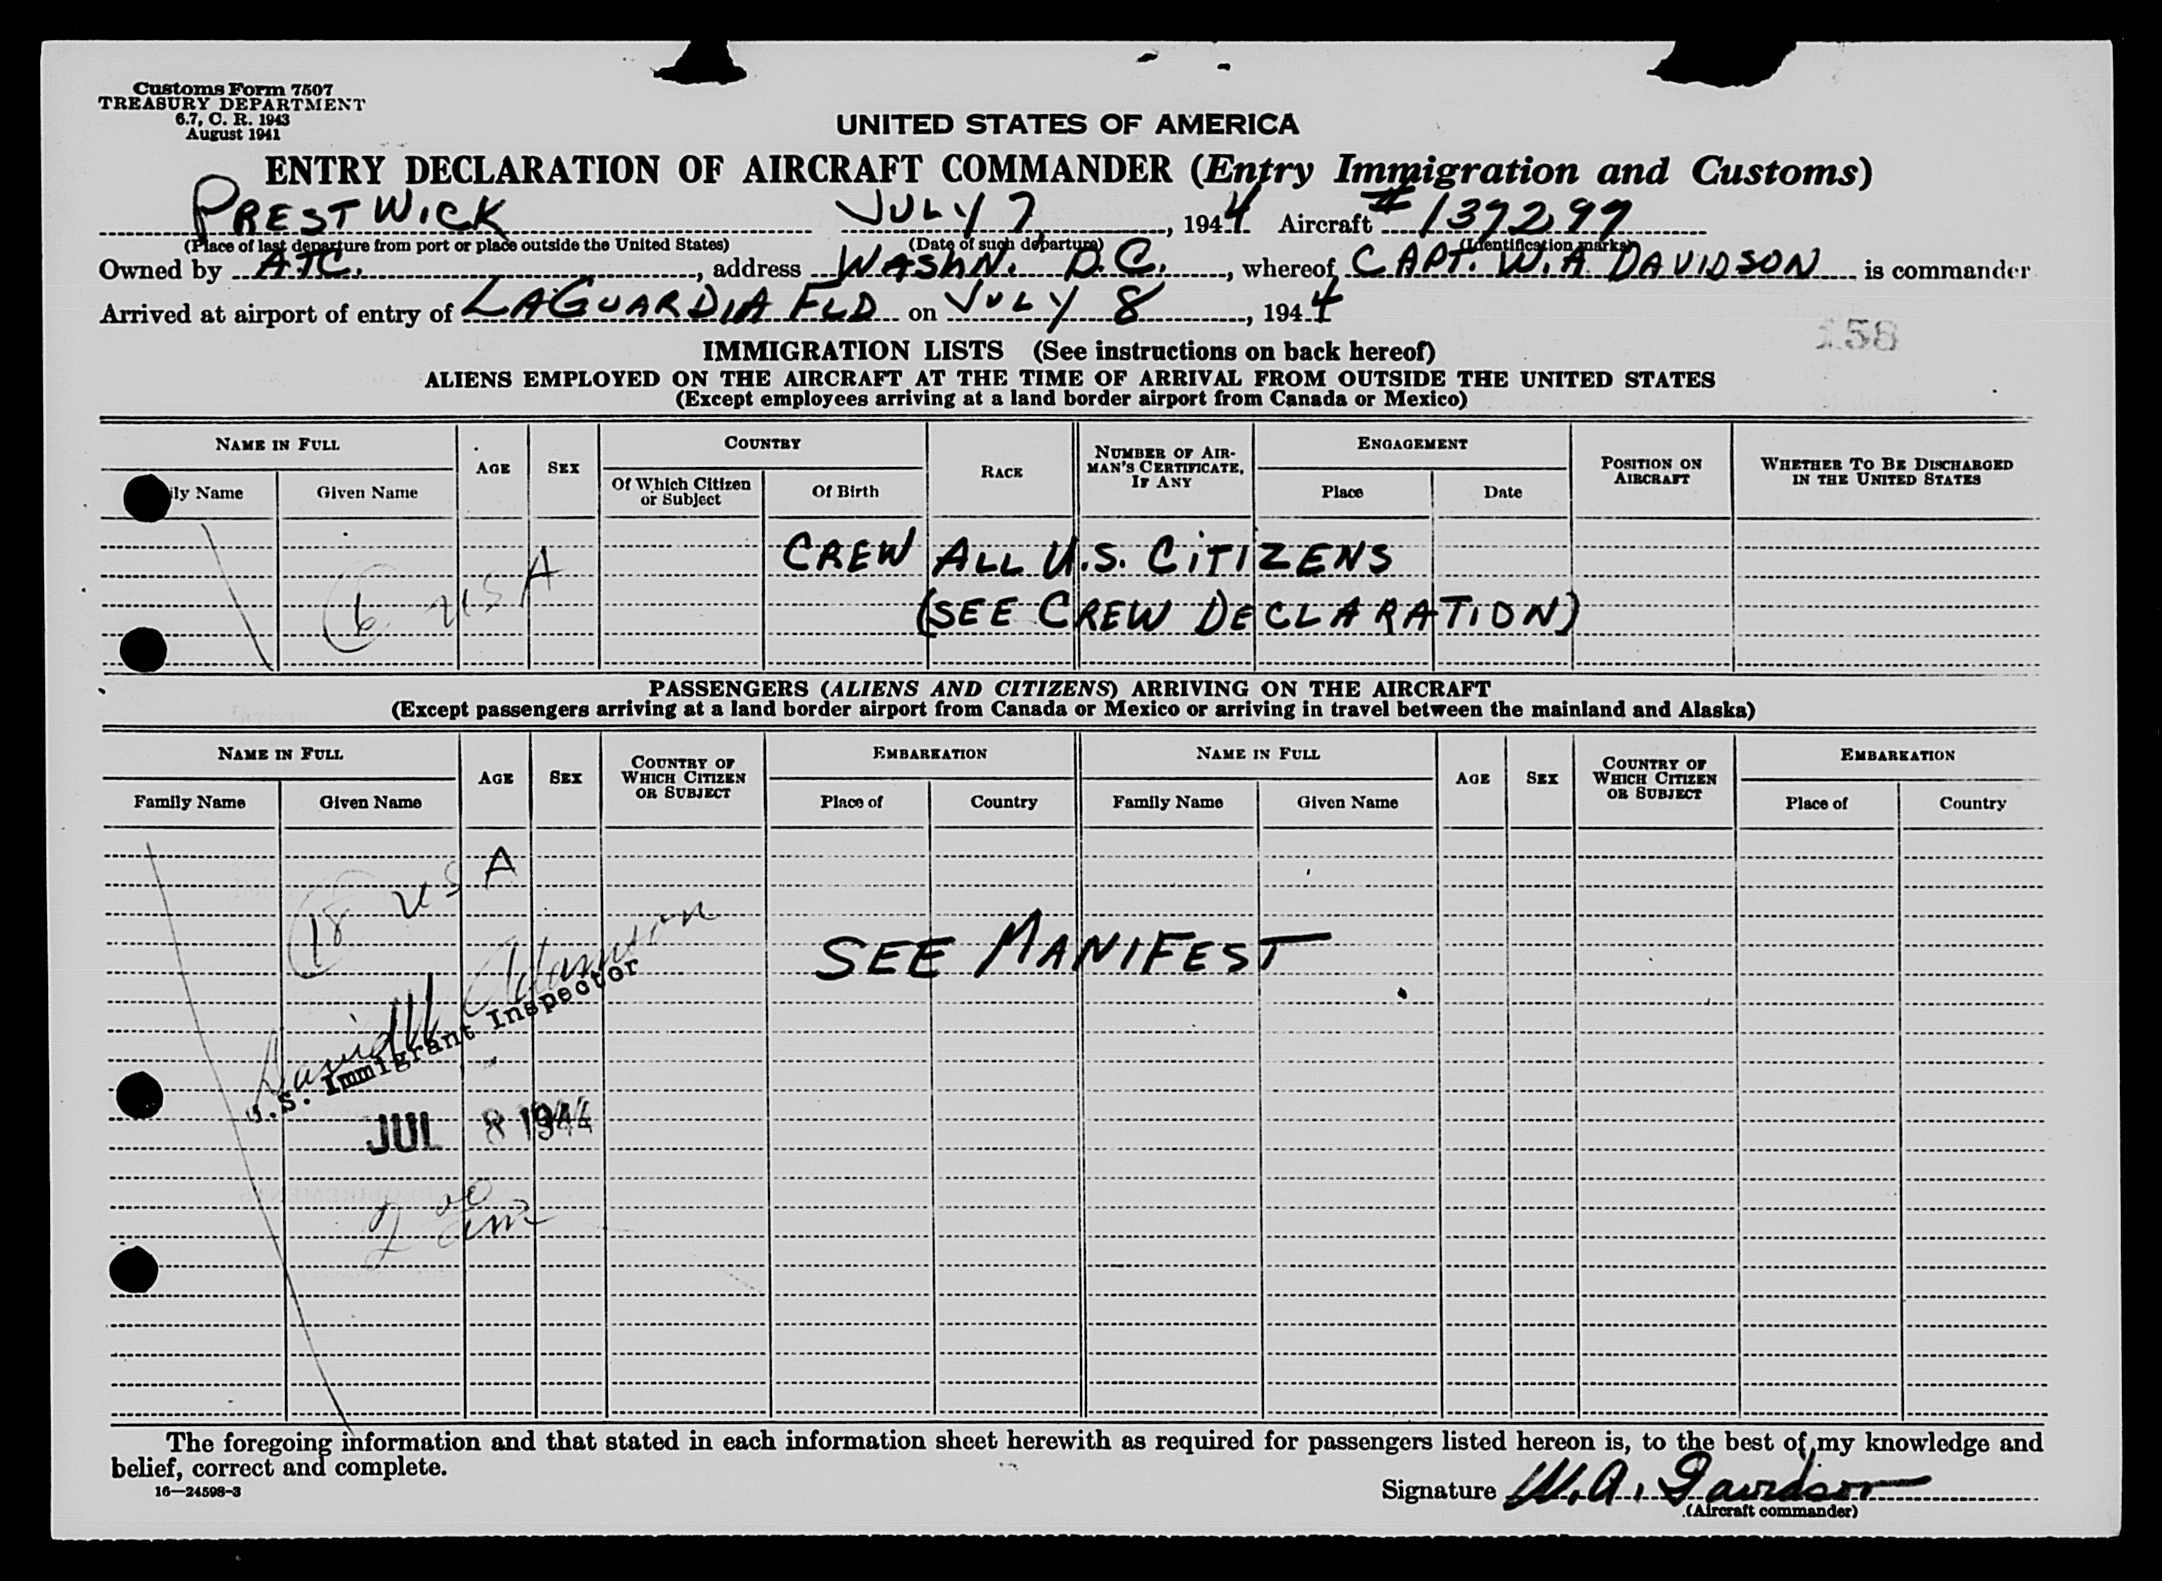 Customs Form 7507
TREASURY DEPARTMENT
6.7, C. R. 1943
August 1941
UNITED STATES OF AMERICA
ENTRY DECLARATION OF AIRCRAFT COMMANDER (Entry Immigration and Customs)
PRESTWICK JULY 7, 1944 Aircraft # 137297
(Place of last departure from port or place outside the United States) (Date of such departure) (Identification marks)
Owned by ATC., address WASHN. D.C., whereof CAPT. W.A DAVIDSON is commander
Arrived at airport of entry of LAGUARDIA FLD on JULY 8, 1944
158
IMMIGRATION LISTS (See instructions on back hereof)
ALIENS EMPLOYED ON THE AIRCRAFT AT THE TIME OF ARRIVAL FROM OUTSIDE THE UNITED STATES
(Except employees arriving at a land border airport from Canada or Mexico)
NAME IN FULL AGE SEX COUNTRY RACE NUMBER OF AIRMAN'S CERTIFICATE, IF ANY ENGAGEMENT POSITION ON AIRCRAFT WHETHER TO BE DISCHARGED IN THE UNITED STATES
ily Name Given Name Of Which Citizen or Subject Of Birth Place Date
CREW ALL U.S. CITIZENS
6 USA
(SEE CREW DECLARATION)
PASSENGERS (ALIENS AND CITIZENS) ARRIVING ON THE AIRCRAFT
(Except passengers arriving at a land border airport from Canada or Mexico or arriving in travel between the mainland and Alaska)
NAME IN FULL AGE SEX COUNTRY OF WHICH CITIZEN OR SUBJECT EMBARKATION NAME IN FULL AGE SEX COUNTRY OF WHICH CITIZEN OR SUBJECT EMBARKATION
Family Name Given Name Place of Country Family Name Given Name Place of Country
18 USA
SEE MANIFEST
David Adamson
U.S. Immigrant Inspector
JUL 8 1944
2 00 am
The foregoing information and that stated in each information sheet herewith as required for passengers listed hereon is, to the best of my knowledge and
belief, correct and complete.
16—24598-3
Signature W.A. Davidson
(Aircraft commander)